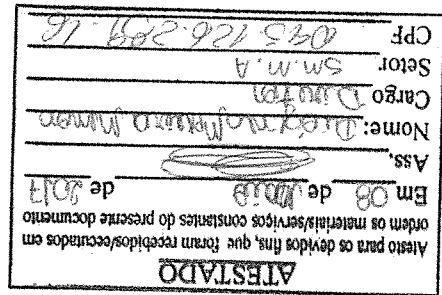 ATESTADO
Atesto para os devidos fins, que foram recebidos/executados em
ordem os materiais/serviços constantes do presente documento
Em 08 de Maio de 2017
Ass.
Nome: Diego Moura
Cargo Diretor
Setor SM.M.A
CPF